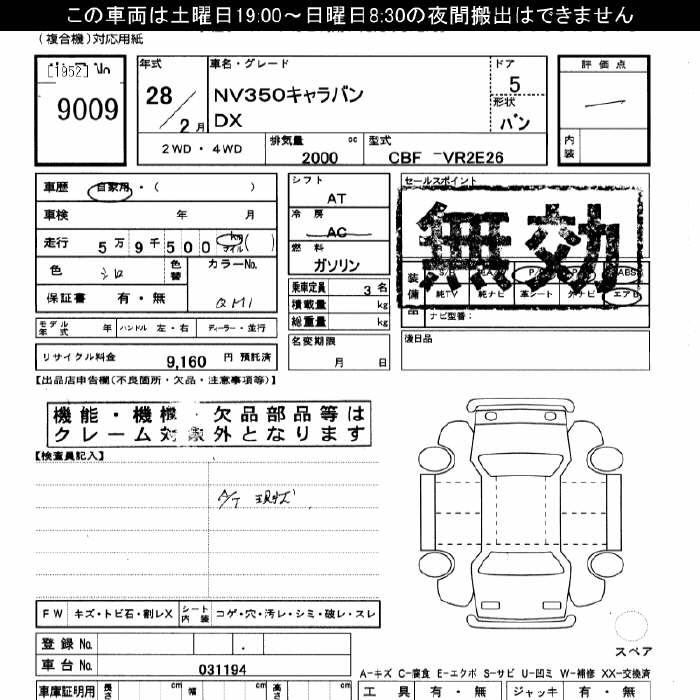 この車両は土曜日19:00～日曜日8:30の夜間搬出はできません
(複合機)対応用紙
[1952] No
9009
年式
28/2月
車名・グレード
NV350キャラバン
DX
ドア
5
形状
バン
2WD・4WD
排気量 cc
2000
型式
CBF -VR2E26
評価点
内装
車歴 自家用・( )
車検 年 月
走行 5万9千500 kg マイル ( )
色 シロ 色替
カラーNo.
QM1
保証書 有・無
モデル年式 年 ハンドル 左・右 ディーラー・並行
リサイクル料金 9,160 円 預託済
シフト
AT
冷房
AC
燃料
ガソリン
乗車定員 3名
積載量 kg
総重量 kg
名変期限
月 日
セールスポイント
無効
装備品
ABS
純TV 純ナビ 革シート 外ナビ エアB
ナビ型番:
後日品
【出品店申告欄(不良箇所・欠品・注意事項等)】
機能・機械・欠品部品等は
クレーム対象外となります
【検査員記入】
A/T 現状
FW キズ・トビ石・割レX シート内装 コゲ・穴・汚レ・シミ・破レ・スレ
登録 No.
車台 No. 031194
スペア
A-キズ C-腐食 E-エクボ S-サビ U-凹ミ W-補修 XX-交換済
車庫証明用 長さ cm 幅 cm 高さ cm
工具 有・無 ジャッキ 有・無